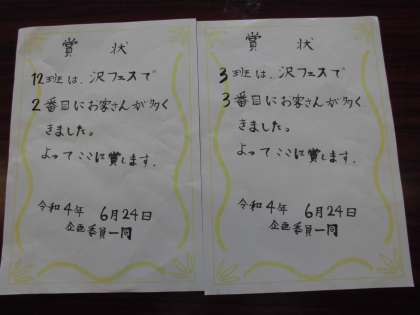 賞 状
12班は、沢フェスで
2番目にお客さんが多く
きました。
よってここに賞します.
令和4年 6月24日
企画委員一同
賞 状
3班は、沢フェスで
3番目にお客さんが多く
きました。
よってここに賞します.
令和4年 6月24日
企画委員一同